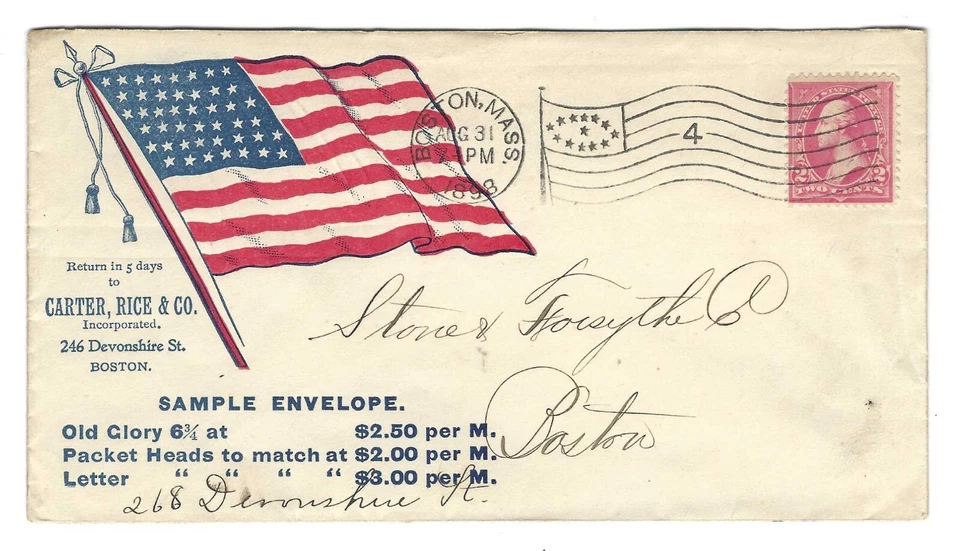 BOSTON, MASS.
AUG 31
7 PM
1898
4
TWO CENTS
Return in 5 days
to
CARTER, RICE & CO.
Incorporated.
246 Devonshire St.
BOSTON.
Stone & Forsythe Co
Boston
SAMPLE ENVELOPE.
Old Glory 6¾ at $2.50 per M.
Packet Heads to match at $2.00 per M.
Letter “ “ “ “ $3.00 per M.
268 Devonshire St.